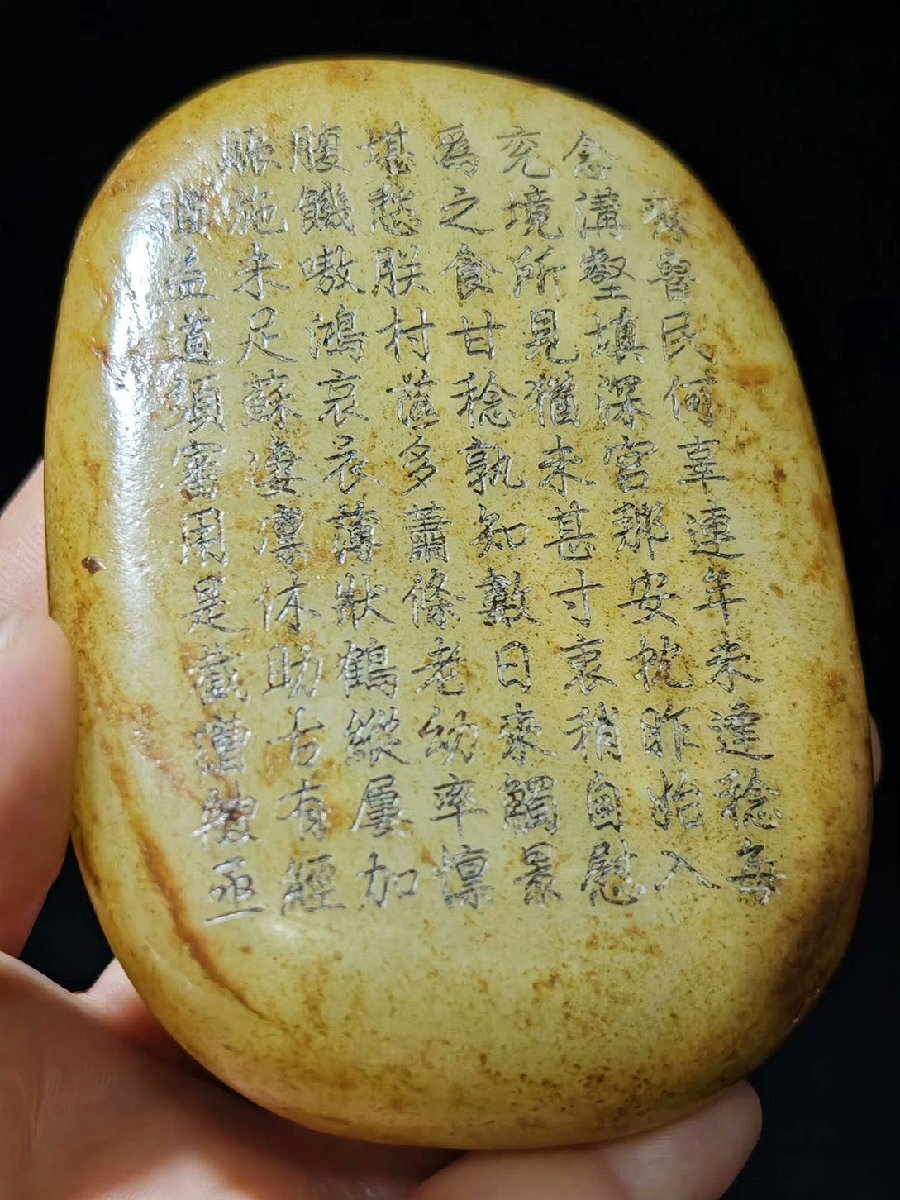 魯民何辜連年未逢稔每
念溝壑填深宮那安枕昨始入
兗境所見猶未甚寸衷稍自慰
爲之食甘稔孰知數日來觸景
堪愁朕村落多蕭條老幼率懍
腹饑嗷鴻哀衣薄狀鶴縱屢加
賑施未足蘇凄凜休助古有經
益道須審用是截漕糧丞